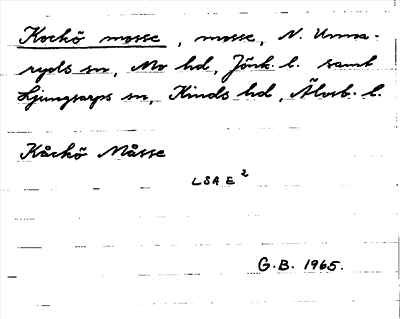 Kockö mosse, mosse, N. Unna-
ryds sn, Mo hd, Jönk. l. samt
Ljungsarps sn, Kinds hd, Älvsb. l.
Kåckö Måsse
LSA E2
G.B. 1965.